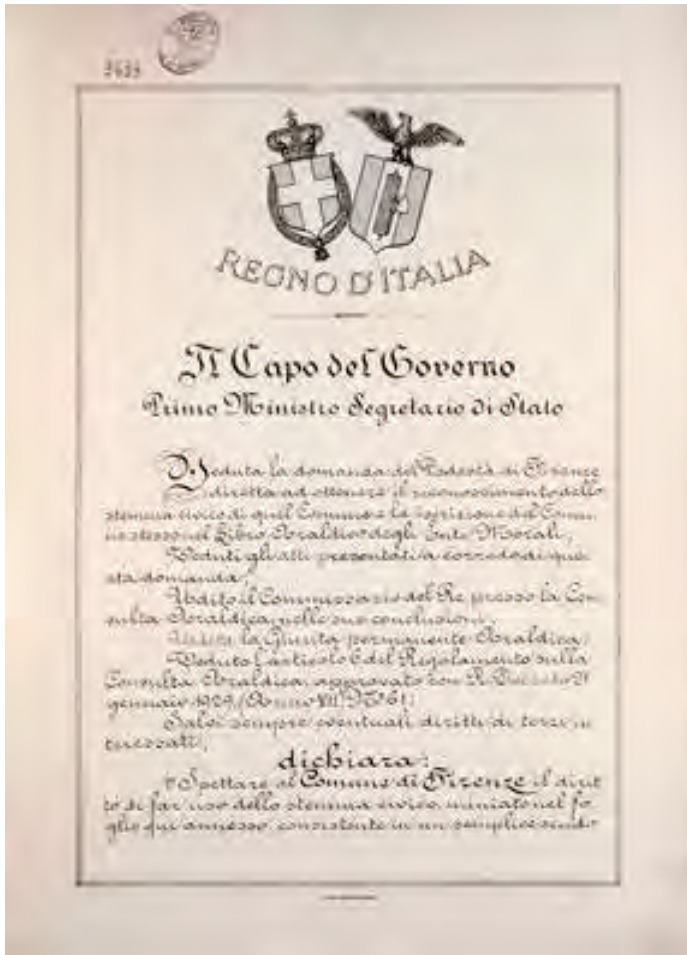 REGNO D'ITALIA
Il Capo del Governo
Primo Ministro Segretario di Stato
Veduta la domanda del Podestà di Firenze
diretta ad ottenere il riconoscimento dello
stemma civico di quel Comune e la iscrizione del Comu-
ne stesso nel Libro Araldico degli Enti Morali;
Veduti gli atti presentati a corredo di que
sta domanda;
Udito il Commissario del Re presso la Con-
sulta Araldica, nelle sue conclusioni;
Udita la Giunta permanente Araldica;
Veduto l'articolo 6 del Regolamento sulla
Consulta Araldica, approvato con R. Decreto 21
gennaio 1929 (Anno VII) N° 61;
Salvi sempre eventuali diritti di terzi in
teressati;
dichiara:
Spettare al Comune di Firenze il dirit
to di far uso dello stemma civico, miniato nel fo
glio qui annesso, consistente in un semplice scudo